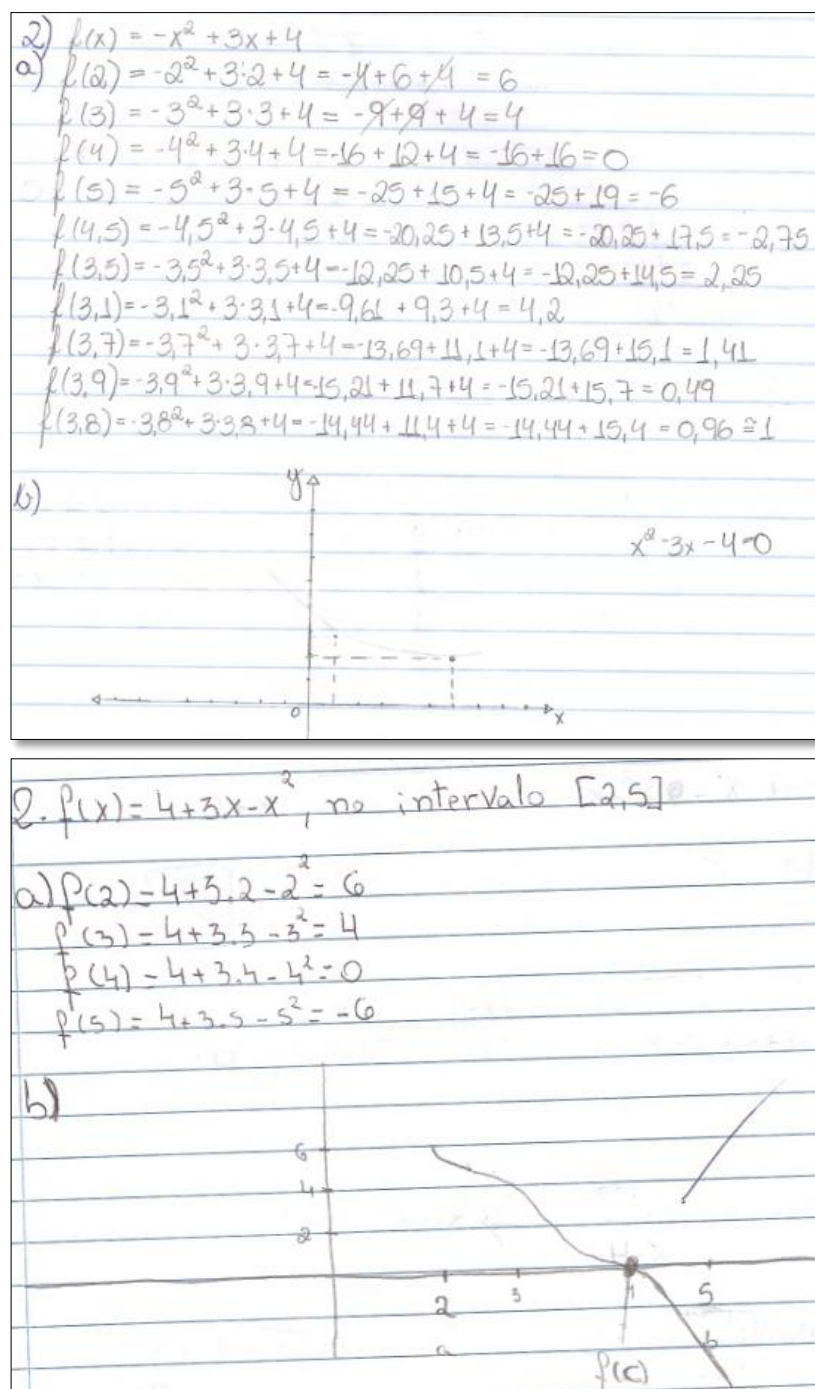 2) f(x) = -x² + 3x + 4
a) f(2) = -2² + 3·2 + 4 = -4 + 6 + 4 = 6
f(3) = -3² + 3·3 + 4 = -9 + 9 + 4 = 4
f(4) = -4² + 3·4 + 4 = -16 + 12 + 4 = -16 + 16 = 0
f(5) = -5² + 3·5 + 4 = -25 + 15 + 4 = -25 + 19 = -6
f(4,5) = -4,5² + 3·4,5 + 4 = -20,25 + 13,5 + 4 = -20,25 + 17,5 = -2,75
f(3,5) = -3,5² + 3·3,5 + 4 = -12,25 + 10,5 + 4 = -12,25 + 14,5 = 2,25
f(3,1) = -3,1² + 3·3,1 + 4 = -9,61 + 9,3 + 4 = 4,2
f(3,7) = -3,7² + 3·3,7 + 4 = -13,69 + 11,1 + 4 = -13,69 + 15,1 = 1,41
f(3,9) = -3,9² + 3·3,9 + 4 = -15,21 + 11,7 + 4 = -15,21 + 15,7 = 0,49
f(3,8) = -3,8² + 3·3,8 + 4 = -14,44 + 11,4 + 4 = -14,44 + 15,4 = 0,96 ≅ 1
b)
y
x² - 3x - 4 = 0
0
x
2. f(x) = 4 + 3x - x², no intervalo [2,5]
a) f(2) = 4 + 3.2 - 2² = 6
f(3) = 4 + 3.3 - 3² = 4
f(4) = 4 + 3.4 - 4² = 0
f(5) = 4 + 3.5 - 5² = -6
b)
6
4
2
2 3 4 5
a b
f(c)